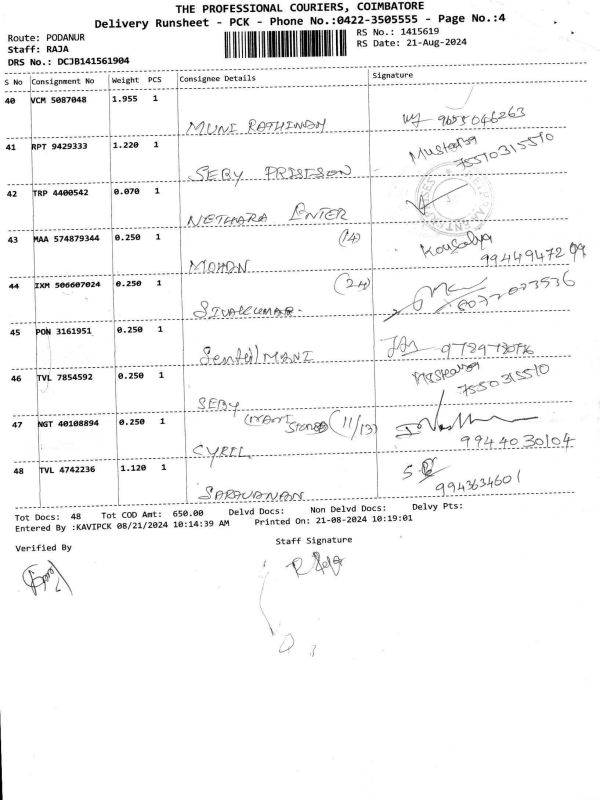 THE PROFESSIONAL COURIERS, COIMBATORE
Delivery Runsheet - PCK - Phone No.:0422-3505555 - Page No.:4
Route: PODANUR
Staff: RAJA
DRS No.: DCJB141561904
RS No.: 1415619
RS Date: 21-Aug-2024
S No Consignment No Weight PCS Consignee Details Signature
40 VCM 5087048 1.955 1 MUNI RATHINAM 9655046263
41 RPT 9429333 1.220 1 SEBY Mustafa 7550315510
42 TRP 4400542 0.070 1 NETHARA ENTER
43 MAA 574879344 0.250 1 MOHAN (14) Kousalya 9944947299
44 IXM 506607024 0.250 1 SIVAKUMAR (24)
45 PON 3161951 0.250 1 Senthil MANI
46 TVL 7854592 0.250 1 SEBY 7550315510
47 NGT 40108894 0.250 1 CYRIL (11/13) 9944030104
48 TVL 4742236 1.120 1 SARAVANAN 9943634601
Tot Docs: 48 Tot COD Amt: 650.00 Delvd Docs: Non Delvd Docs: Delvy Pts:
Entered By :KAVIPCK 08/21/2024 10:14:39 AM Printed On: 21-08-2024 10:19:01
Verified By
Staff Signature